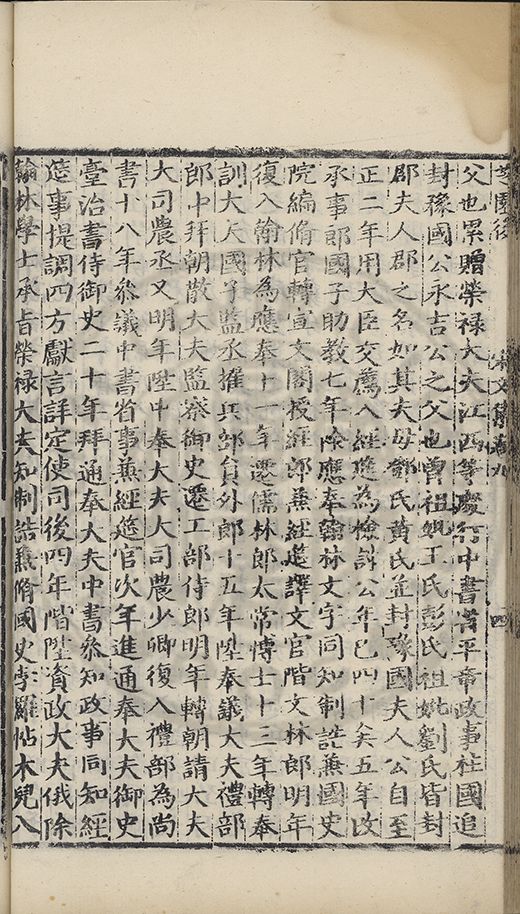 芝園後
四
父也累贈榮禄大夫江西等處行中書省平章政事柱國追
封豫國公永吉公之父也曾祖妣王氏彭氏祖妣劉氏皆封
郡夫人郡之名如其夫母鄧氏黃氏並封豫國夫人公自至
正二年用大臣交薦入經筵為檢討公年已四十矣五年改
承事郎國子助教七年除應奉翰林文字同知制誥兼國史
院編脩官轉宣文閣授經郎兼經筵譯文官階文林郎明年
復入翰林為應奉十一年遷儒林郎太常愽士十三年轉奉
訓大夫國子監丞推兵部員外郎十五年陞奉議大夫禮部
郎中拜朝散大夫監察御史遷工部侍郎明年轉朝請大夫
大司農丞又明年陞中奉大夫大司農少卿復入禮部為尚
書十八年參議中書省事兼經筵官次年進通奉大夫御史
臺治書侍御史二十年拜通奉大夫中書參知政事同知經
筵事提調四方獻言詳定使司後四年階陞資政大夫俄除
翰林學士承旨榮禄大夫知制誥兼脩國史孛羅帖木兒入